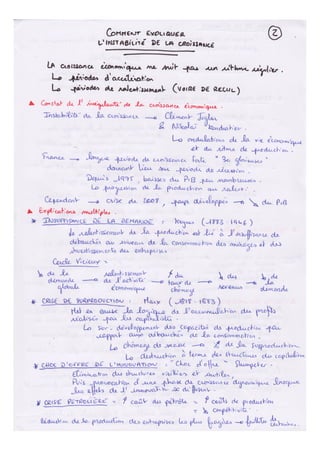 COMMENT EXPLIQUER
L'INSTABILITÉ DE LA CROISSANCE
2
LA croissance économique ne suit pas un rythme régulier.
↳ périodes d'accélération
↳ périodes de ralentissement (VOIRE DE RECUL)
Constat de l'irrégularité de la croissance économique.
Instabilité de la croissance → Clément Juglar
& Nikolaï Kondratiev.
↳ ondulations de la vie économique
et du rythme de production.
France → longue période de croissance forte "30 glorieuses"
donnant lieu aux périodes de récession.
Depuis 1975, baisses du PIB peu nombreuses.
La progression de la production au ralenti.
Cependant → crise de 2008, pays développés → ↘ du PIB
Explications multiples.
INSUFFISANCE DE LA DEMANDE : Keynes (1883 1946)
le ralentissement de la production est lié à l'insuffisance de
débouchés au niveau de la consommation des ménages et des
investissements des entreprises
Cercle Vicieux -
↘ de la demande globale → ralentissement de l'activité économique → ↗ du taux de chômage → ↘ des revenus → ↘ de la demande
CRISE DE SURPRODUCTION : Marx (1818 - 1883)
Met en cause la logique de l'accumulation des profits
réalisés par les capitalistes.
↳ Sur-développement des capacités de production par
rapport aux débouchés de la consommation.
↳ chômage de masse → ↗ de la surproduction.
↳ destruction à terme des structures du capitalisme
CHOC D'OFFRE DE L'INNOVATION : "Choc d'offre" Shumpeter.
Élimination des structures vieillies et inutiles,
Puis provocation d'une phase de croissance dynamique lorsque
les effets de l'innovation se diffusent.
CRISE PÉTROLIÈRE = ↑ coût du pétrole → ↑ coûts de production
= ↘ compétitivité
Réduction de la production des entreprises les plus fragiles → faillite de certaines.